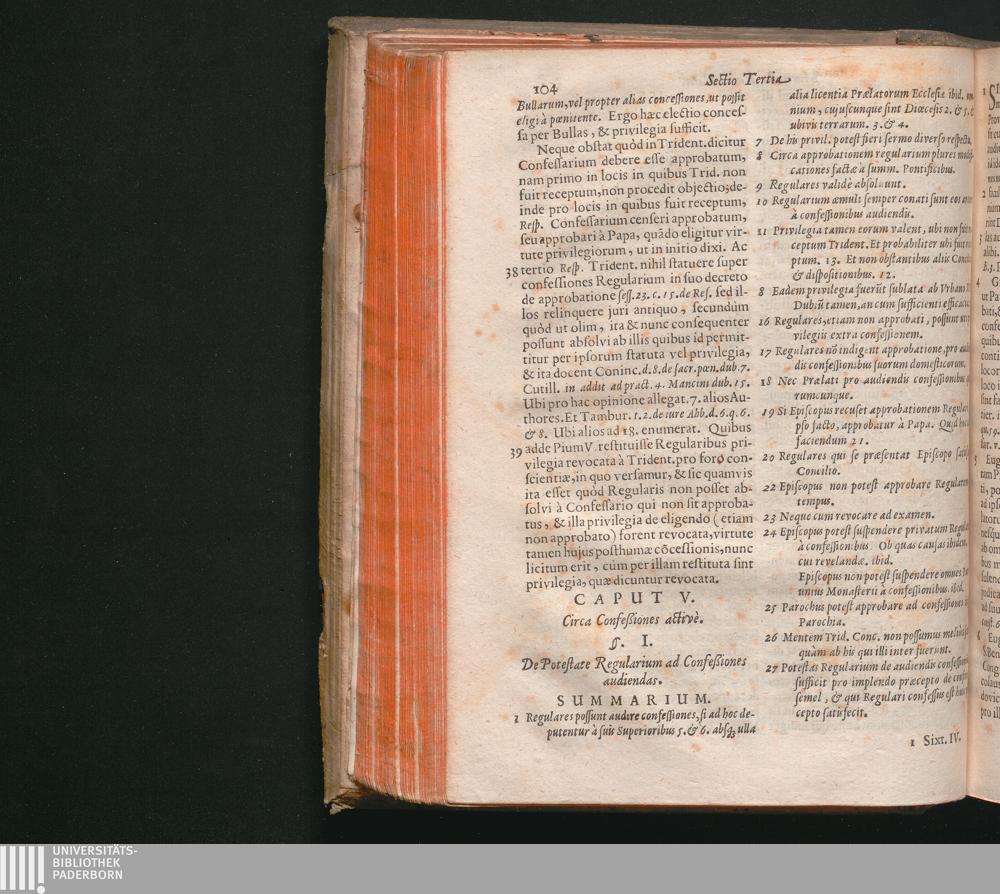 104
Sectio Tertia
Bullarum, vel propter alias concessiones, ut possit
eligi à pœnitente. Ergo hæc electio conces-
sa per Bullas, & privilegia sufficit.
Neque obstat quòd in Trident. dicitur
Confessarium debere esse approbatum,
nam primo in locis in quibus Trid. non
fuit receptum, non procedit objectio; de-
inde pro locis in quibus fuit receptum,
Resp. Confessarium censeri approbatum,
seu approbari à Papa, quãdo eligitur vir-
tute privilegiorum, ut in initio dixi. Ac
38 tertio Resp. Trident. nihil statuere super
confessiones Regularium in suo decreto
de approbatione sess. 23. c. 15. de Ref. sed il-
los relinquere juri antiquo, secundùm
quòd ut olim, ita & nunc consequenter
possunt absolvi ab illis quibus id permit-
titur per ipsorum statuta vel privilegia,
& ita docent Coninc. d. 8. de sacr. pœn. dub. 7.
Cutill. in addit ad pract. 4. Mancini dub. 15.
Ubi pro hac opinione allegat. 7. alios Au-
thores. Et Tambur. t. 2. de iure Abb. d. 6. q. 6.
& 8. Ubi alios ad 18. enumerat. Quibus
39 adde Pium V. restituisse Regularibus pri-
vilegia revocata à Trident. pro foro con-
scientiæ, in quo versamur, & sic quamvis
ita esset quòd Regularis non posset ab-
solvi à Confessario qui non sit approba-
tus, & illa privilegia de eligendo (etiam
non approbato) forent revocata, virtute
tamen hujus posthumæ cõcessionis, nunc
licitum erit, cùm per illam restituta sint
privilegia, quæ dicuntur revocata.
CAPUT V.
Circa Confeßiones activè.
§. I.
De Potestate Regularium ad Confeßiones
audiendas.
SUMMARIUM.
1 Regulares possunt audire confessiones, si ad hoc de-
putentur à suis Superioribus 5. & 6. absq; ulla
alia licentia Prælatorum Ecclesiæ ibid.
nium, cujuscunque sint Diœcesis 2. &
ubivis terrarum. 3. & 4.
7 De his privil. potest fieri sermo diverso respectu,
8 Circa approbationem regularium plures
cationes factæ à summ. Pontificibus.
9 Regulares validè absolvunt.
10 Regularium æmuli semper conati sunt eos
à confessionibus audiendis.
11 Privilegia tamen eorum valent, ubi non
ceptum Trident. Et probabiliter ubi fuit
ptum. 13. Et non obstantibus aliis
& dispositionibus. 12.
8 Eadem privilegia fuerũt sublata ab Urbano
Dubiũ tamen, an cum sufficienti
16 Regulares, etiam non approbati, possunt
vilegiis extra confessionem.
17 Regulares nõ indigent approbatione, pro
dis confessionibus suorum domesticorum.
18 Nec Prælati pro audiendis confessionibus
rumcunque.
19 Si Episcopus recuset approbationem
pso facto, approbatur à Papa. Quid
faciendum 21.
20 Regulares qui se præsentat Episcopo
Concilio.
22 Episcopus non potest approbare
tempus.
23 Neque eum revocare ad examen.
24 Episcopus potest suspendere privatum
à confessionibus. Ob quas causas ibidem,
cui revelandæ. ibid.
Episcopus non potest suspendere omnes
unius Monasterii à confessionibus. ibid.
25 Parochus potest approbare ad confessiones
Parochia.
26 Mentem Trid. Conc. non possumus
quàm ab his qui illi interfuerunt.
27 Potestas Regularium de audiendis
sufficit pro implendo præcepto de
semel, & qui Regulari confessus est
cepto satisfecit.
1 Sixt. IV.
UNIVERSITÄTS-
BIBLIOTHEK
PADERBORN